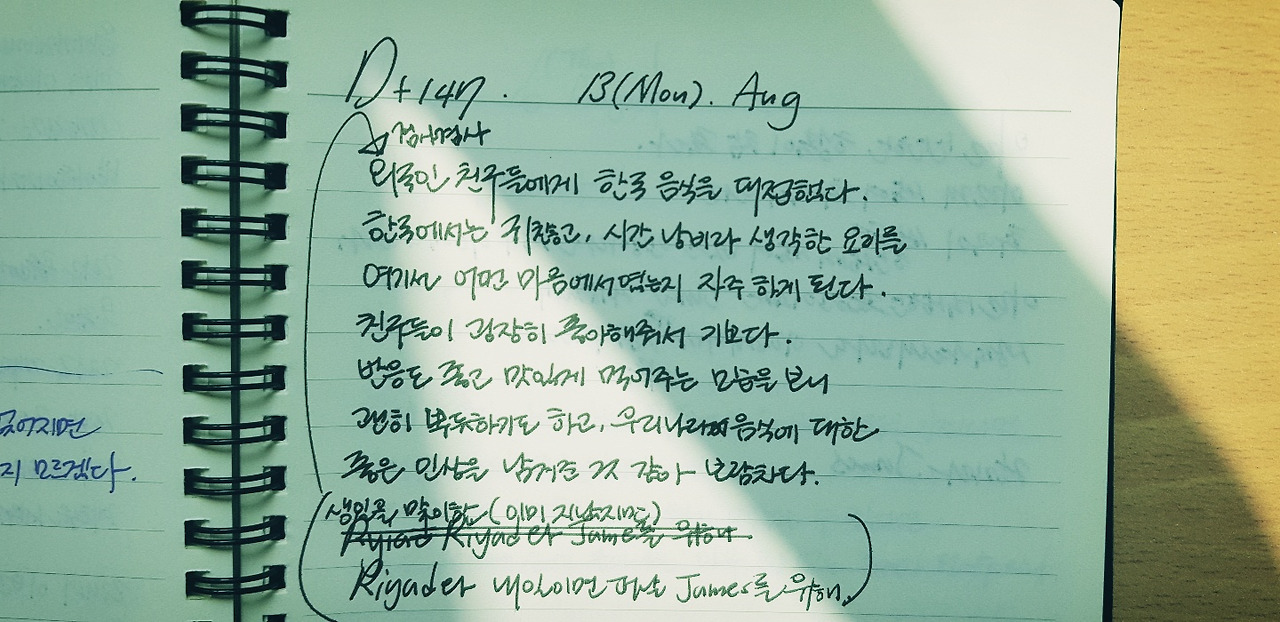 D+147. 13(Mon). Aug
외국인 친구들에게 한국 음식을 대접했다.
한국에서는 귀찮고, 시간 낭비라 생각한 요리를
여기선 어떤 마음에서였는지 자주 하게 된다.
친구들이 굉장히 좋아해줘서 기쁘다.
반응도 좋고 맛있게 먹어주는 모습을 보니
괜히 뿌듯하기도 하고, 우리나라 음식에 대한
좋은 인상을 남겨준 것 같아 보람차다.
생일을 맞이한 (이미 지났지만)
Riyad와 James를 위해
Riyad와 내일이면 떠날 James를 위해.
없어지면
지 모르겠다.